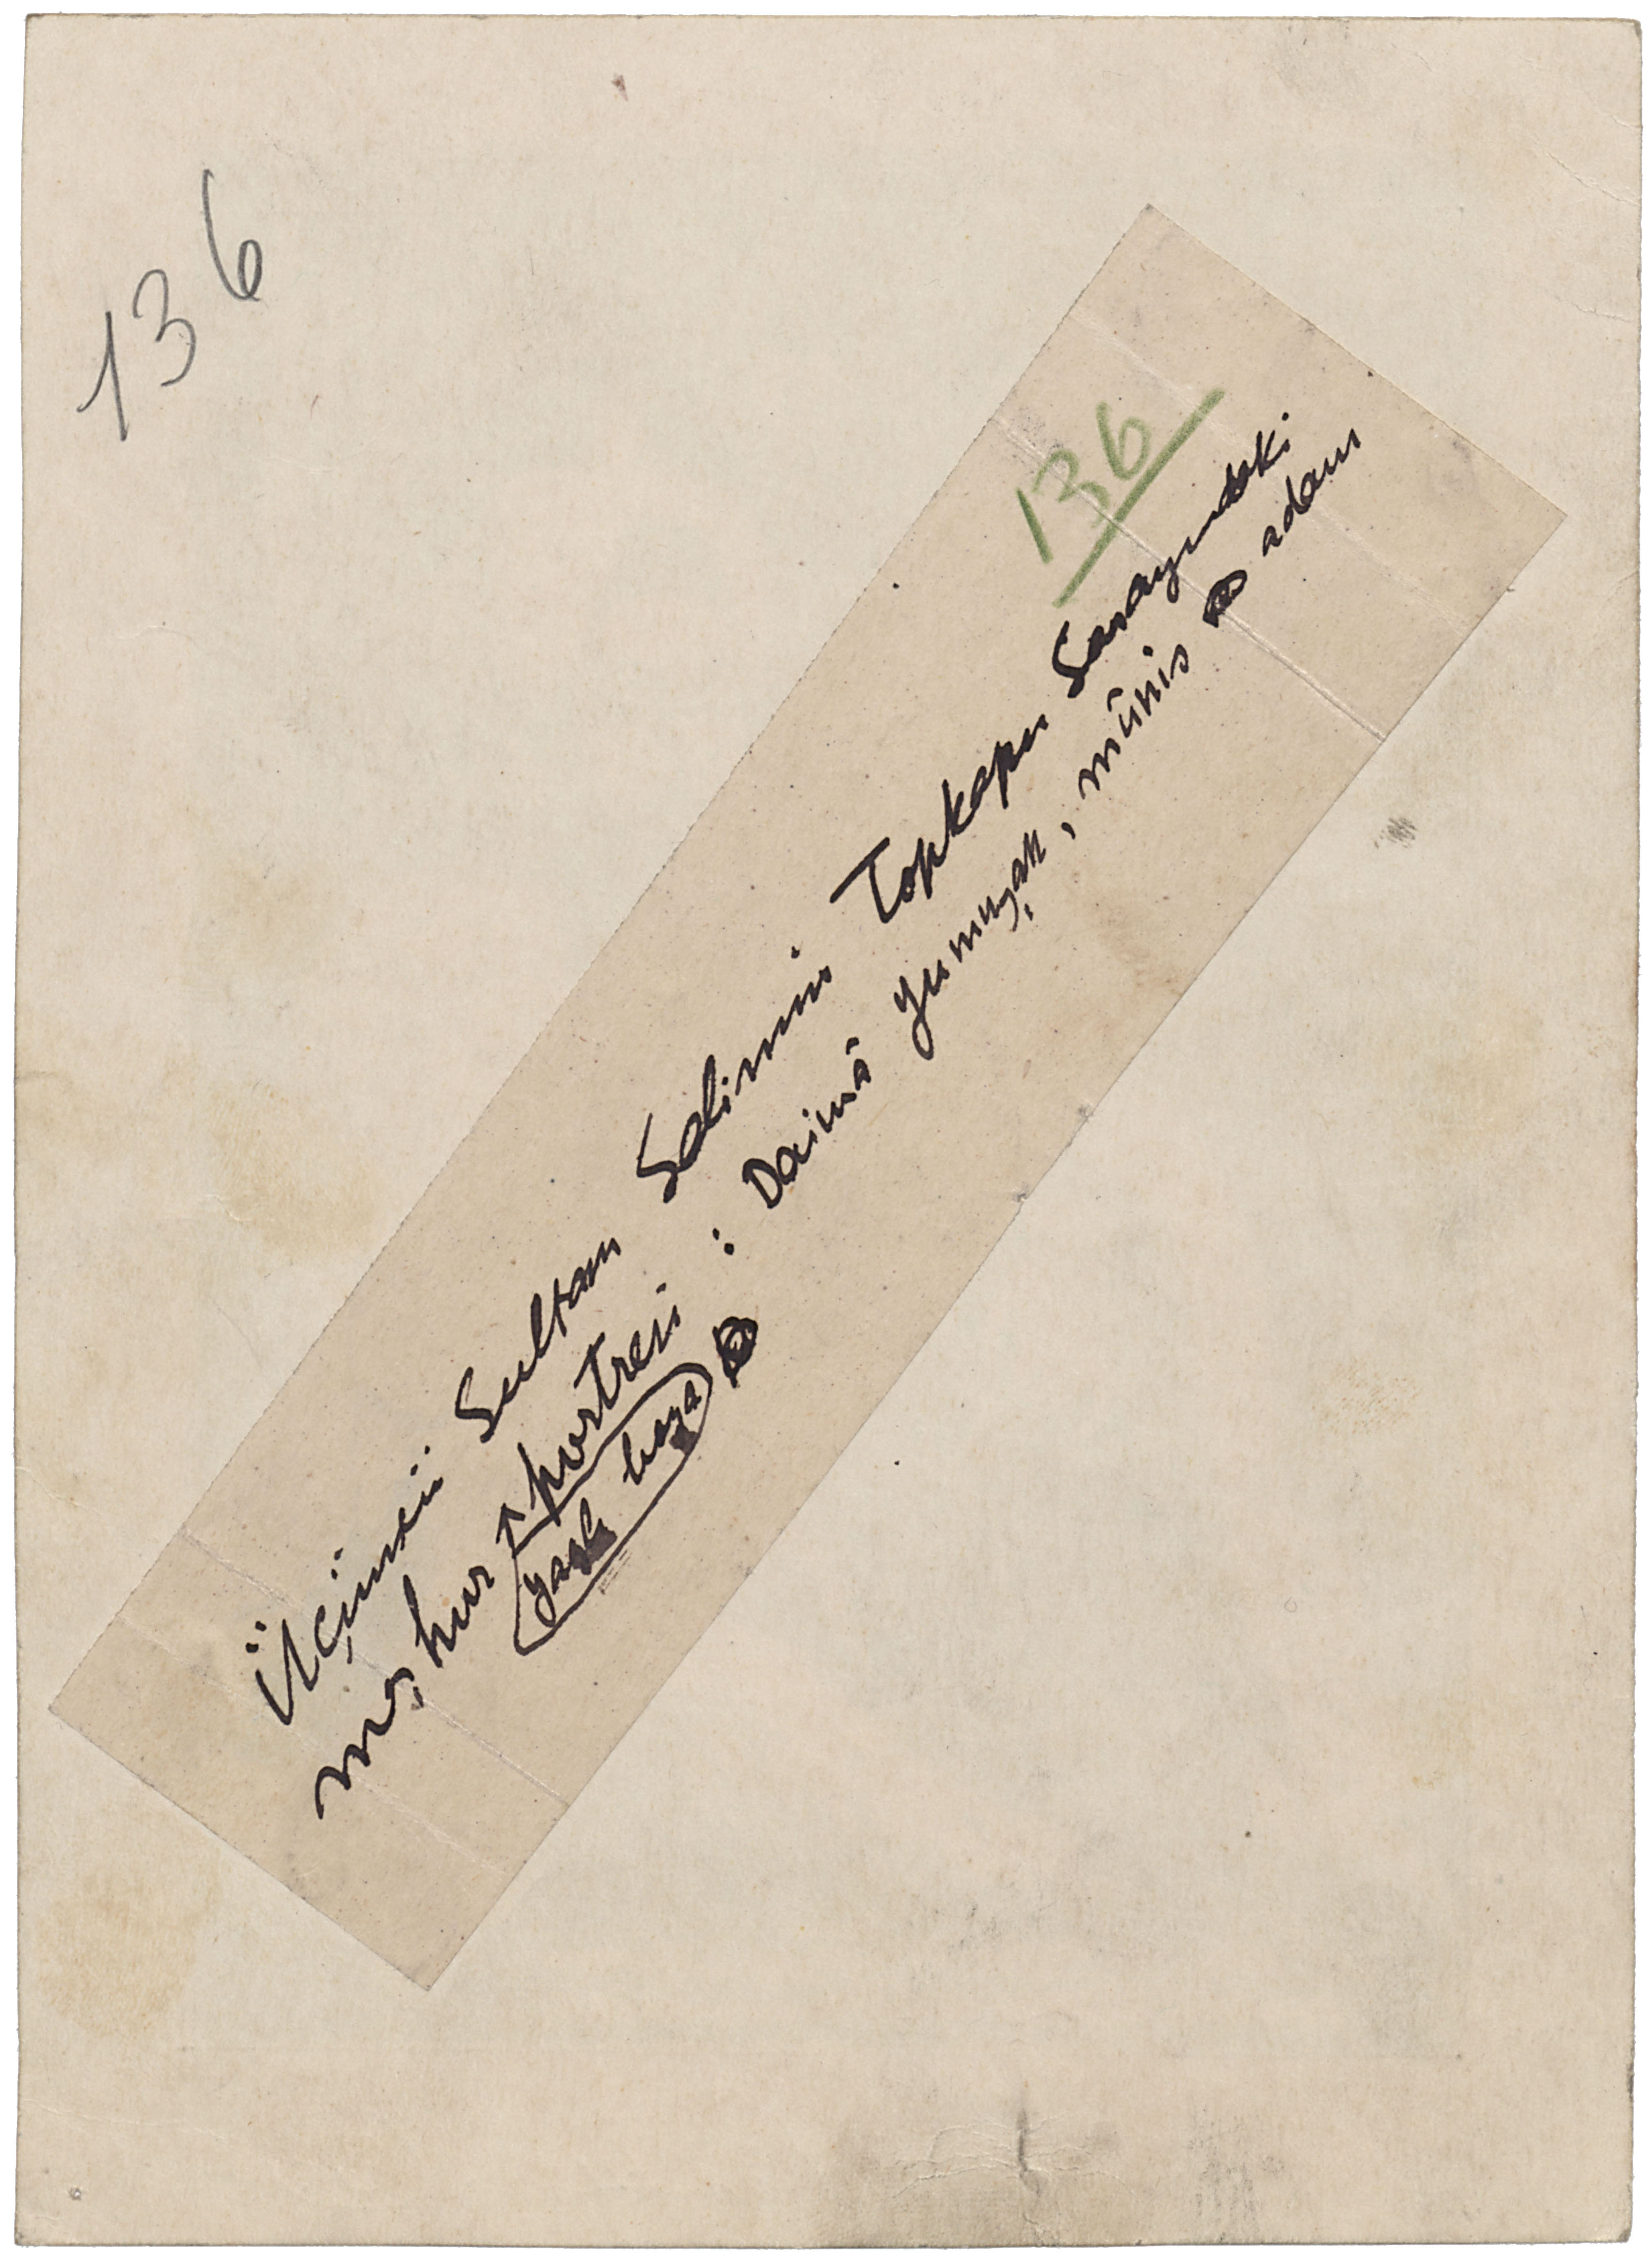 136
136
Üçüncü Sultan Selimin Topkapu Sarayındaki
meşhur portresi : Daimâ yumuşak, mûnis adam
yağlı boya